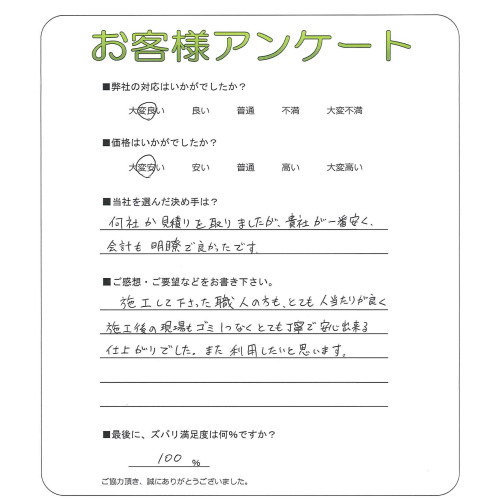 お客様アンケート
■弊社の対応はいかがでしたか？
大変良い 良い 普通 不満 大変不満
■価格はいかがでしたか？
大変安い 安い 普通 高い 大変高い
■当社を選んだ決め手は？
何社か見積りを取りましたが、貴社が一番安く、
会計も明瞭で良かったです。
■ご感想・ご要望などをお書き下さい。
施工して下さった職人の方も、とても人当たりが良く
施工後の現場もゴミ1つなくとても丁寧で安心出来る
仕上がりでした。また利用したいと思います。
■最後に、ズバリ満足度は何%ですか？
100 %
ご協力頂き、誠にありがとうございました。